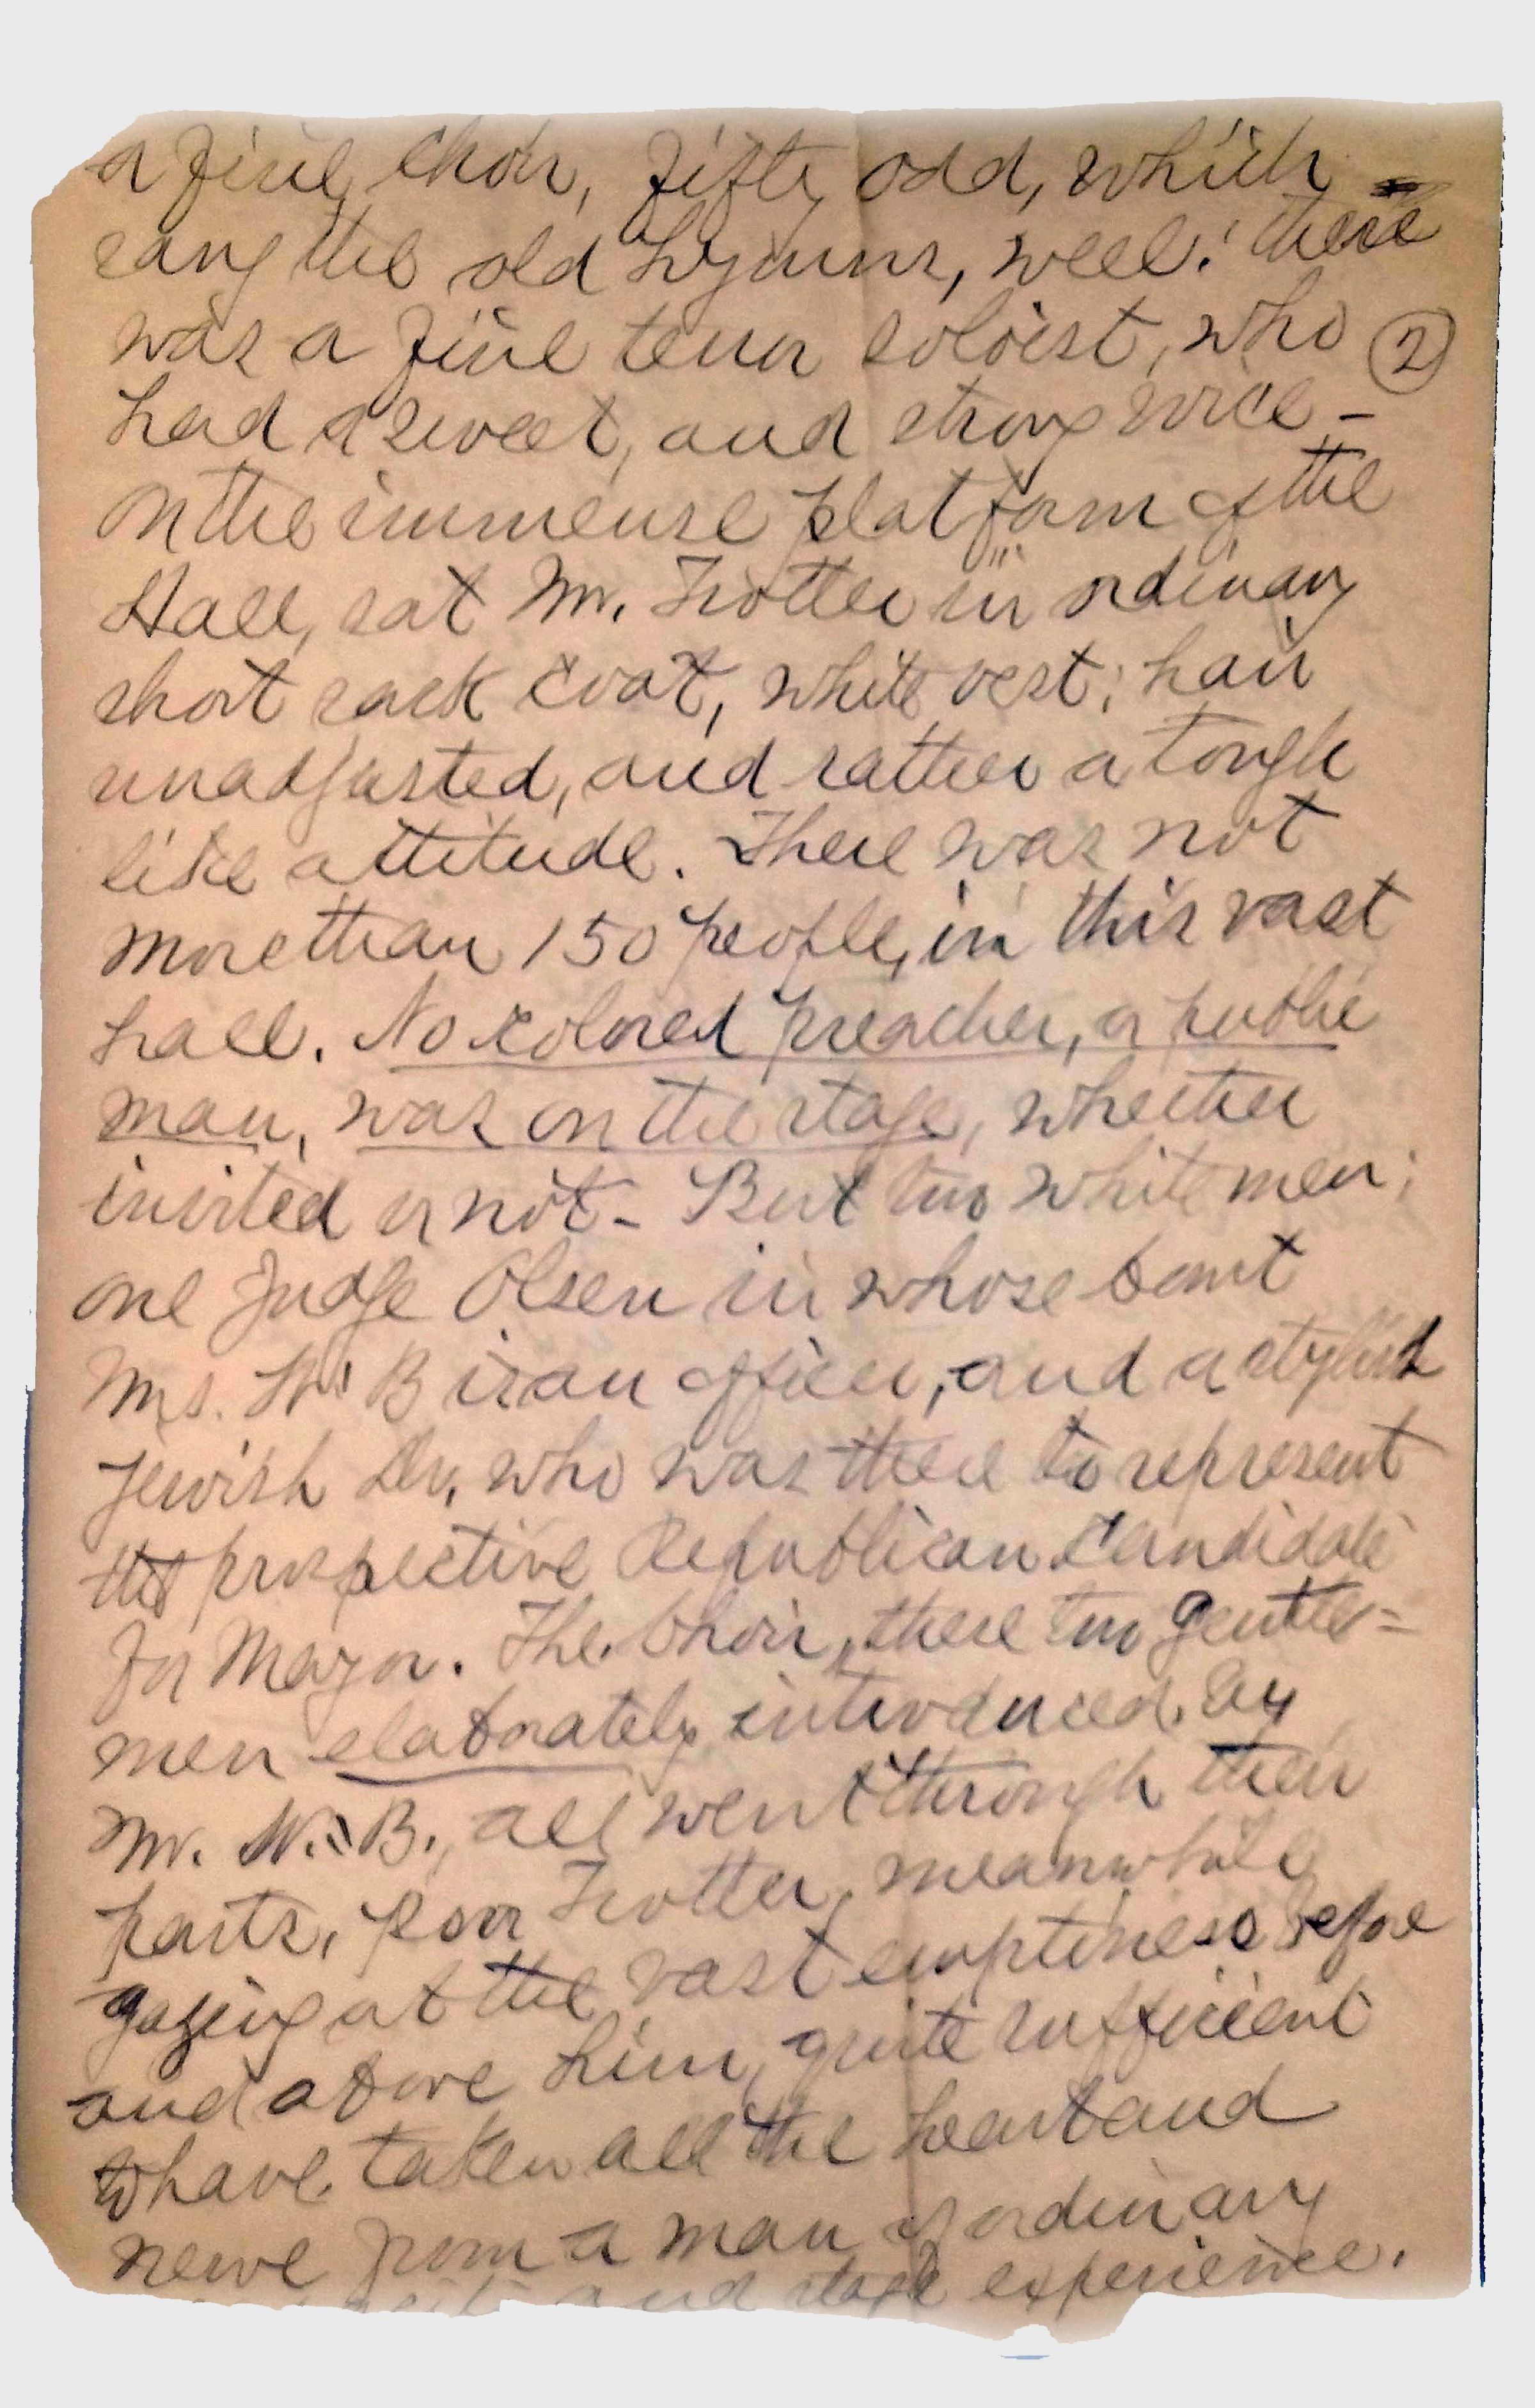 a fine choir, fifty odd, which
sang the old hymns, well: there
was a fine tenor soloist, who
②
had a sweet, and strong voice –
On the immense platform of the
Hall, sat Mr. Trotter in ordinary
short sack coat, white vest; hair
unadjusted, and rather a tough
like attitude. There was not
more than 150 people, in this vast
hall. No colored preacher, or public
man, was on the stage, whether
invited or not – But two white men;
one Judge Olsen in whose court
Mrs. W. B is an officer, and a stylish
Jewish Dr. who was there to represent
the prospective Republican Candidate
for Mayor. The Choir, these two gentle=
men elaborately introduced by
Mr. W. B., all went through their
parts, poor Trotter, meanwhile
gazing at the vast emptiness before
and above him, quite sufficient
to have taken all the heart and
nerve from a man of ordinary
and stage experience.